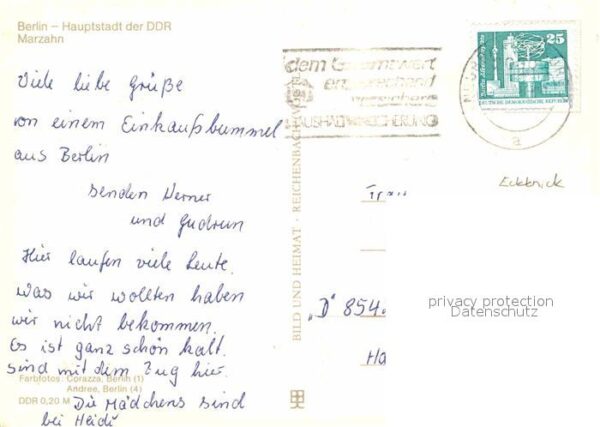 Berlin – Hauptstadt der DDR
Marzahn
Viele liebe Grüße
von einem Einkaufsbummel
aus Berlin
senden Werner
und Gudrun
Hier laufen viele Leute.
Was wir wollten haben
wir nicht bekommen.
Es ist ganz schön kalt.
sind mit dem Zug hier.
Die Mädchens sind
bei Heidi
Farbfotos: Corazza, Berlin (1)
Andree, Berlin (4)
DDR 0,20 M
BILD UND HEIMAT · REICHENBACH
dem Gesamtwert
entsprechend
versichern
HAUSHALTVERSICHERUNG
25
DEUTSCHE DEMOKRATISCHE REPUBLIK
a
"D" 854
privacy protection
Datenschutz